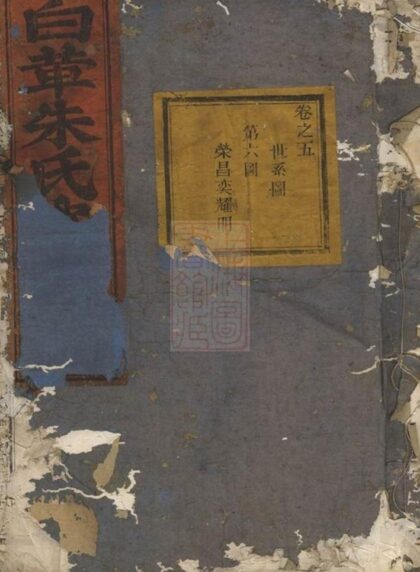 白革朱氏
卷之五
世系圖
第六圖
榮昌奕耀